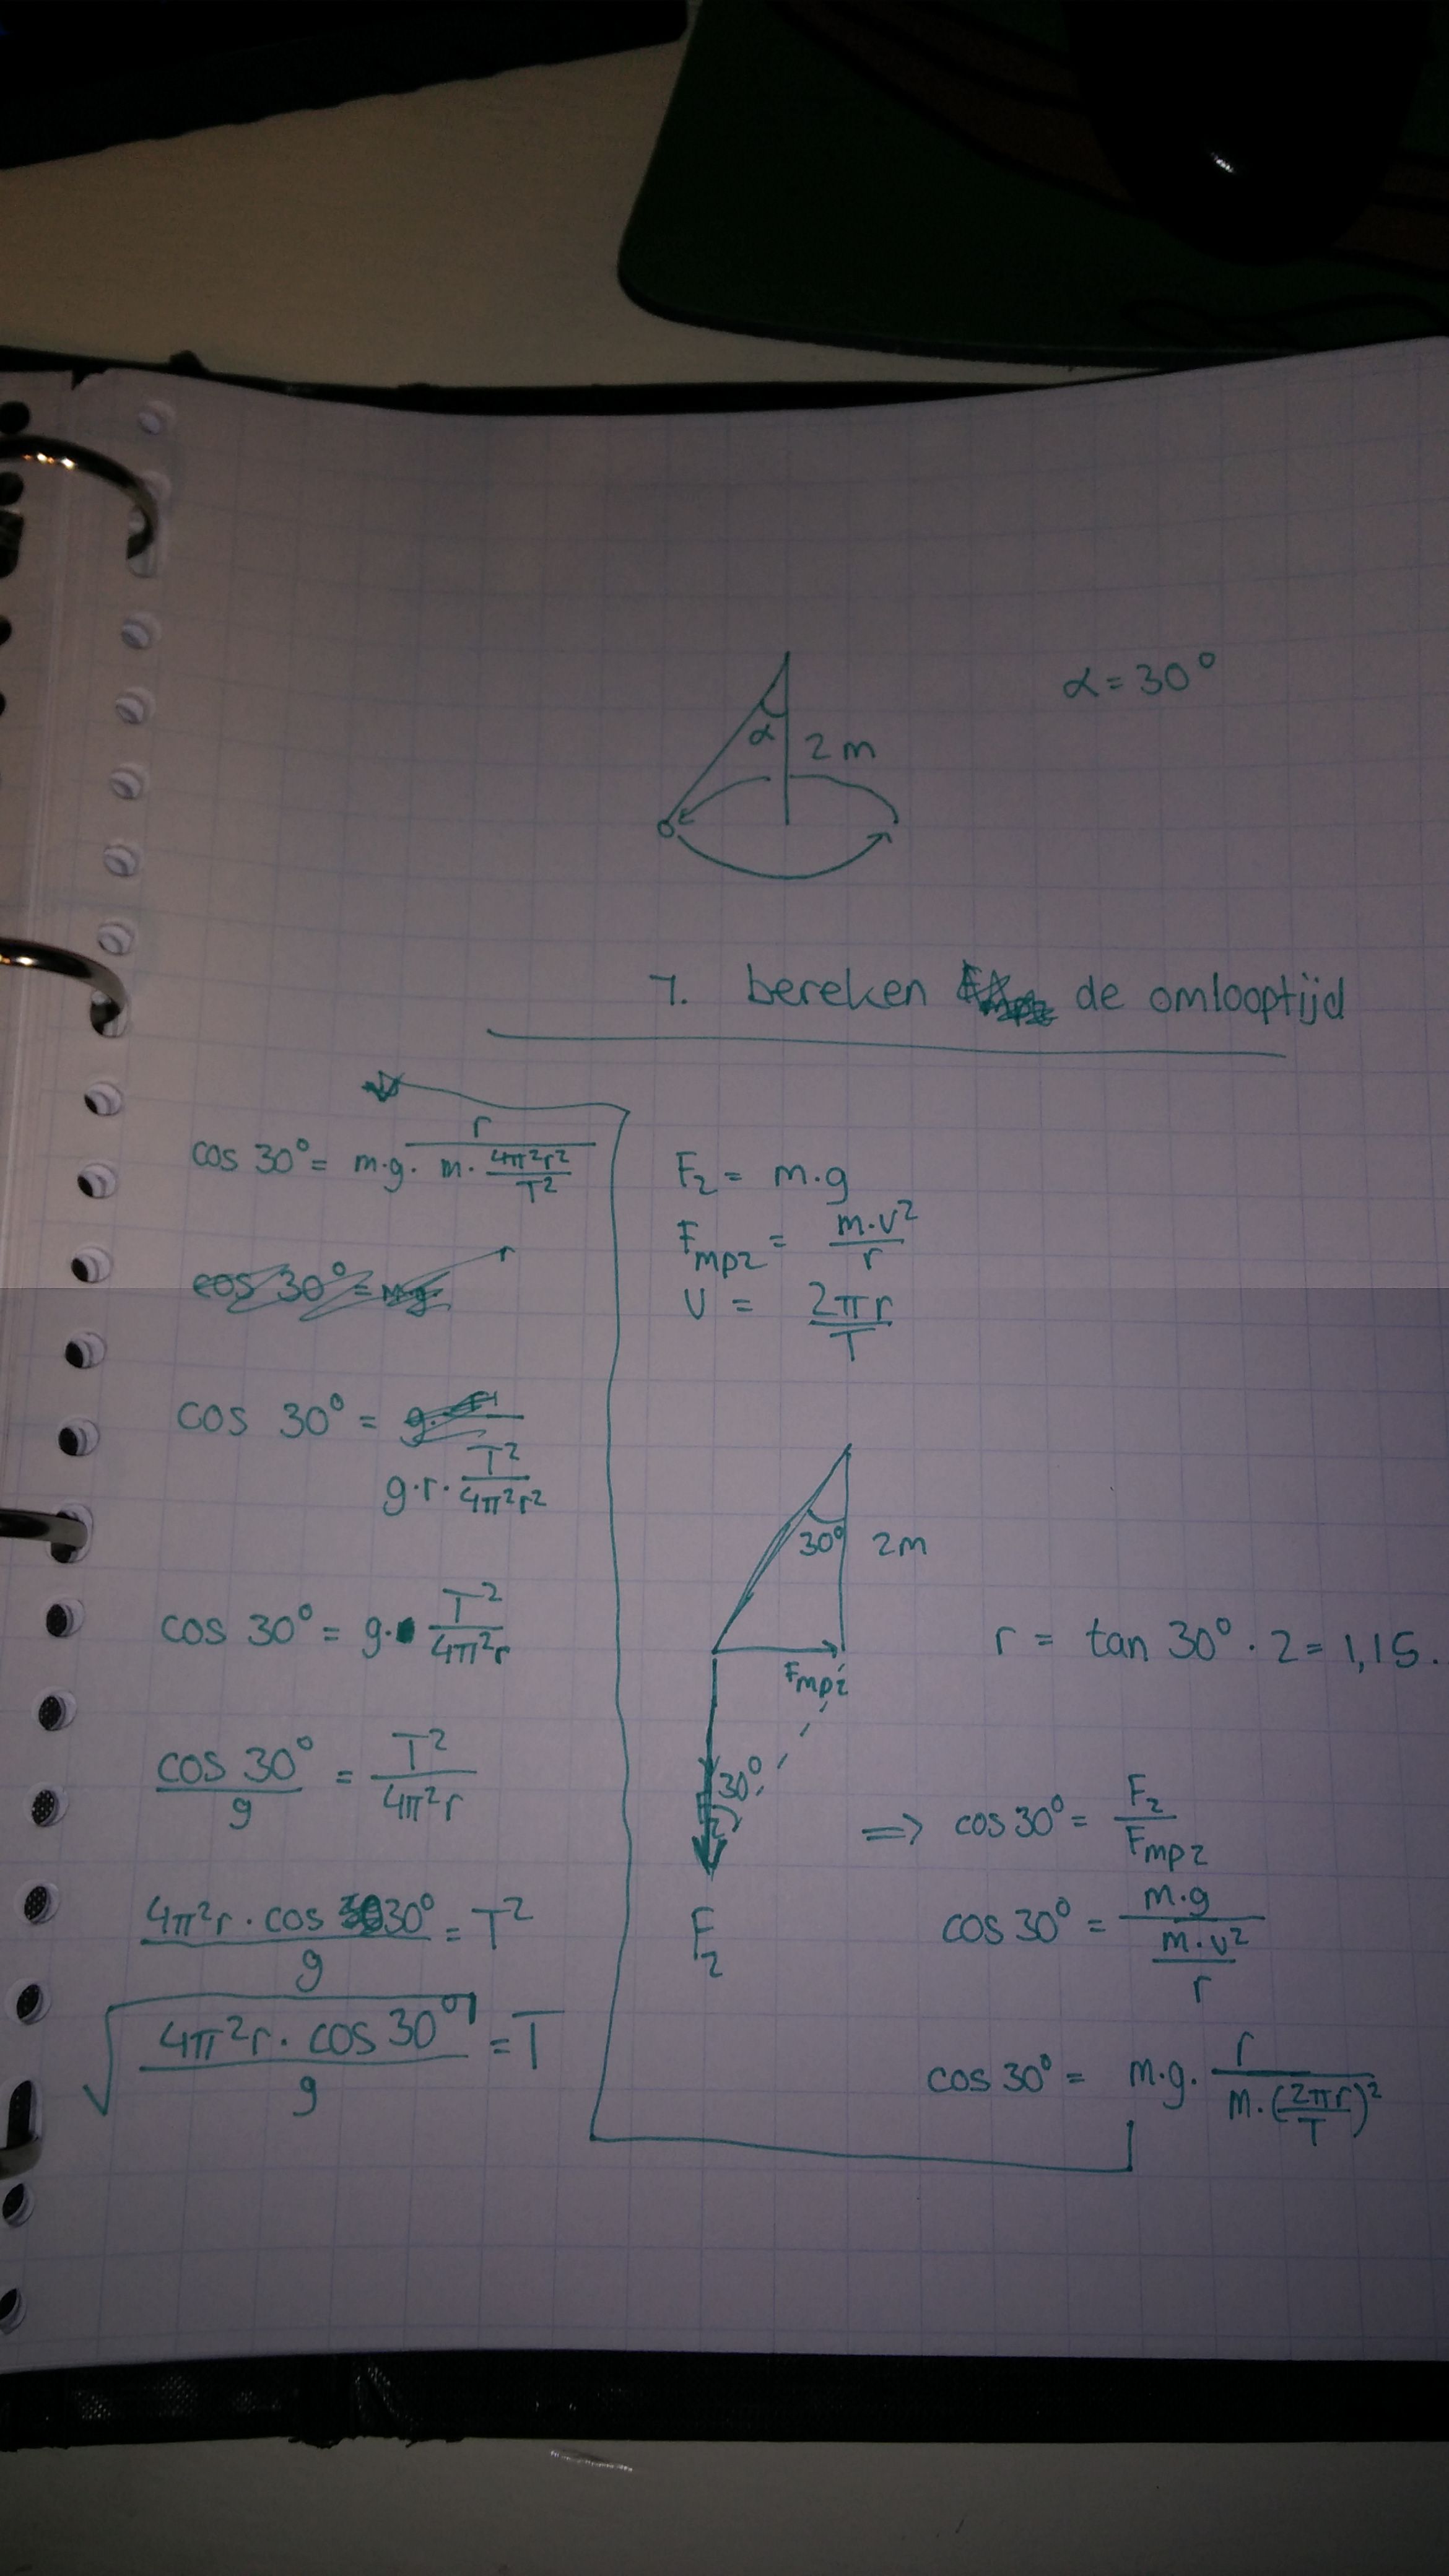 α = 30°
α
2 m
7. bereken de omlooptijd
Fz = m·g
Fmpz = m·v² / r
v = 2πr / T
30° 2m
Fmpz
r = tan 30° · 2 = 1,15.
30°
Fz
=> cos 30° = Fz / Fmpz
cos 30° = m·g / (m·v² / r)
cos 30° = m·g · r / (m·(2πr / T)²)
cos 30° = m·g · r / (m · 4π²r² / T²)
cos 30° = g·r · T² / 4π²r²
cos 30° = g · T² / 4π²r
cos 30° / g = T² / 4π²r
4π²r · cos 30° / g = T²
√(4π²r · cos 30° / g) = T